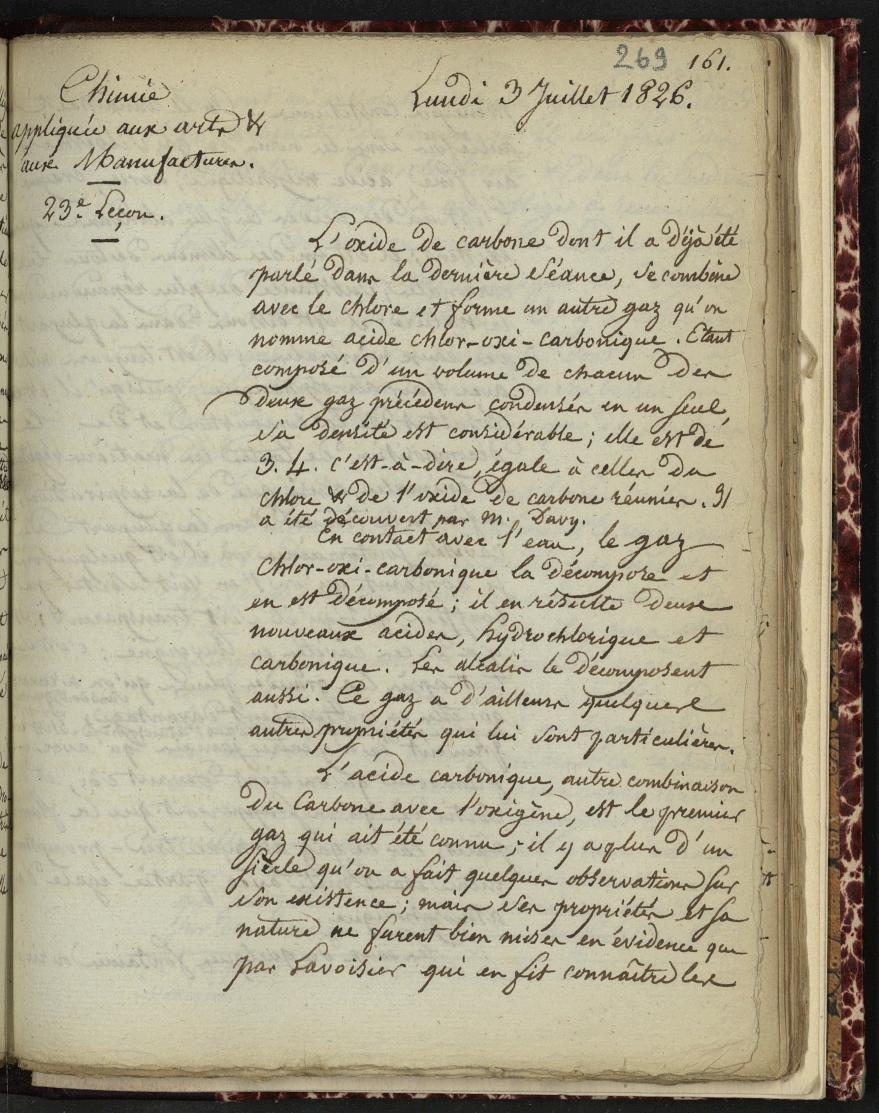 269 161.
Chimie
appliquée aux arts &
aux Manufactures.
23e. Leçon.
Lundi 3 Juillet 1826.
L'oxide de carbone dont il a déjà été
parlé dans la dernière séance, se combine
avec le chlore et forme un autre gaz qu'on
nomme acide chlor-oxi-carbonique. Etant
composé d'un volume de chacun des
deux gaz précédens condensés en un seul,
sa densité est considérable ; elle est de
3.4. c'est-à-dire, égale à celles du
chlore & de l'oxide de carbone réunies. Il
a été découvert par M. Davy.
En contact avec l'eau, le gaz
chlor-oxi-carbonique la décompose et
en est décomposé ; il en résulte deux
nouveaux acides, hydrochlorique et
carbonique. Les alcalis le décomposent
aussi. Ce gaz a d'ailleurs quelques
autres propriétés qui lui sont particulières.
L'acide carbonique, autre combinaison
du Carbone avec l'oxigène, est le premier
gaz qui ait été connu ; il y a plus d'un
siècle qu'on a fait quelques observations sur
son existence ; mais ses propriétés et sa
nature ne furent bien mises en évidence que
par Lavoisier qui en fit connaître les